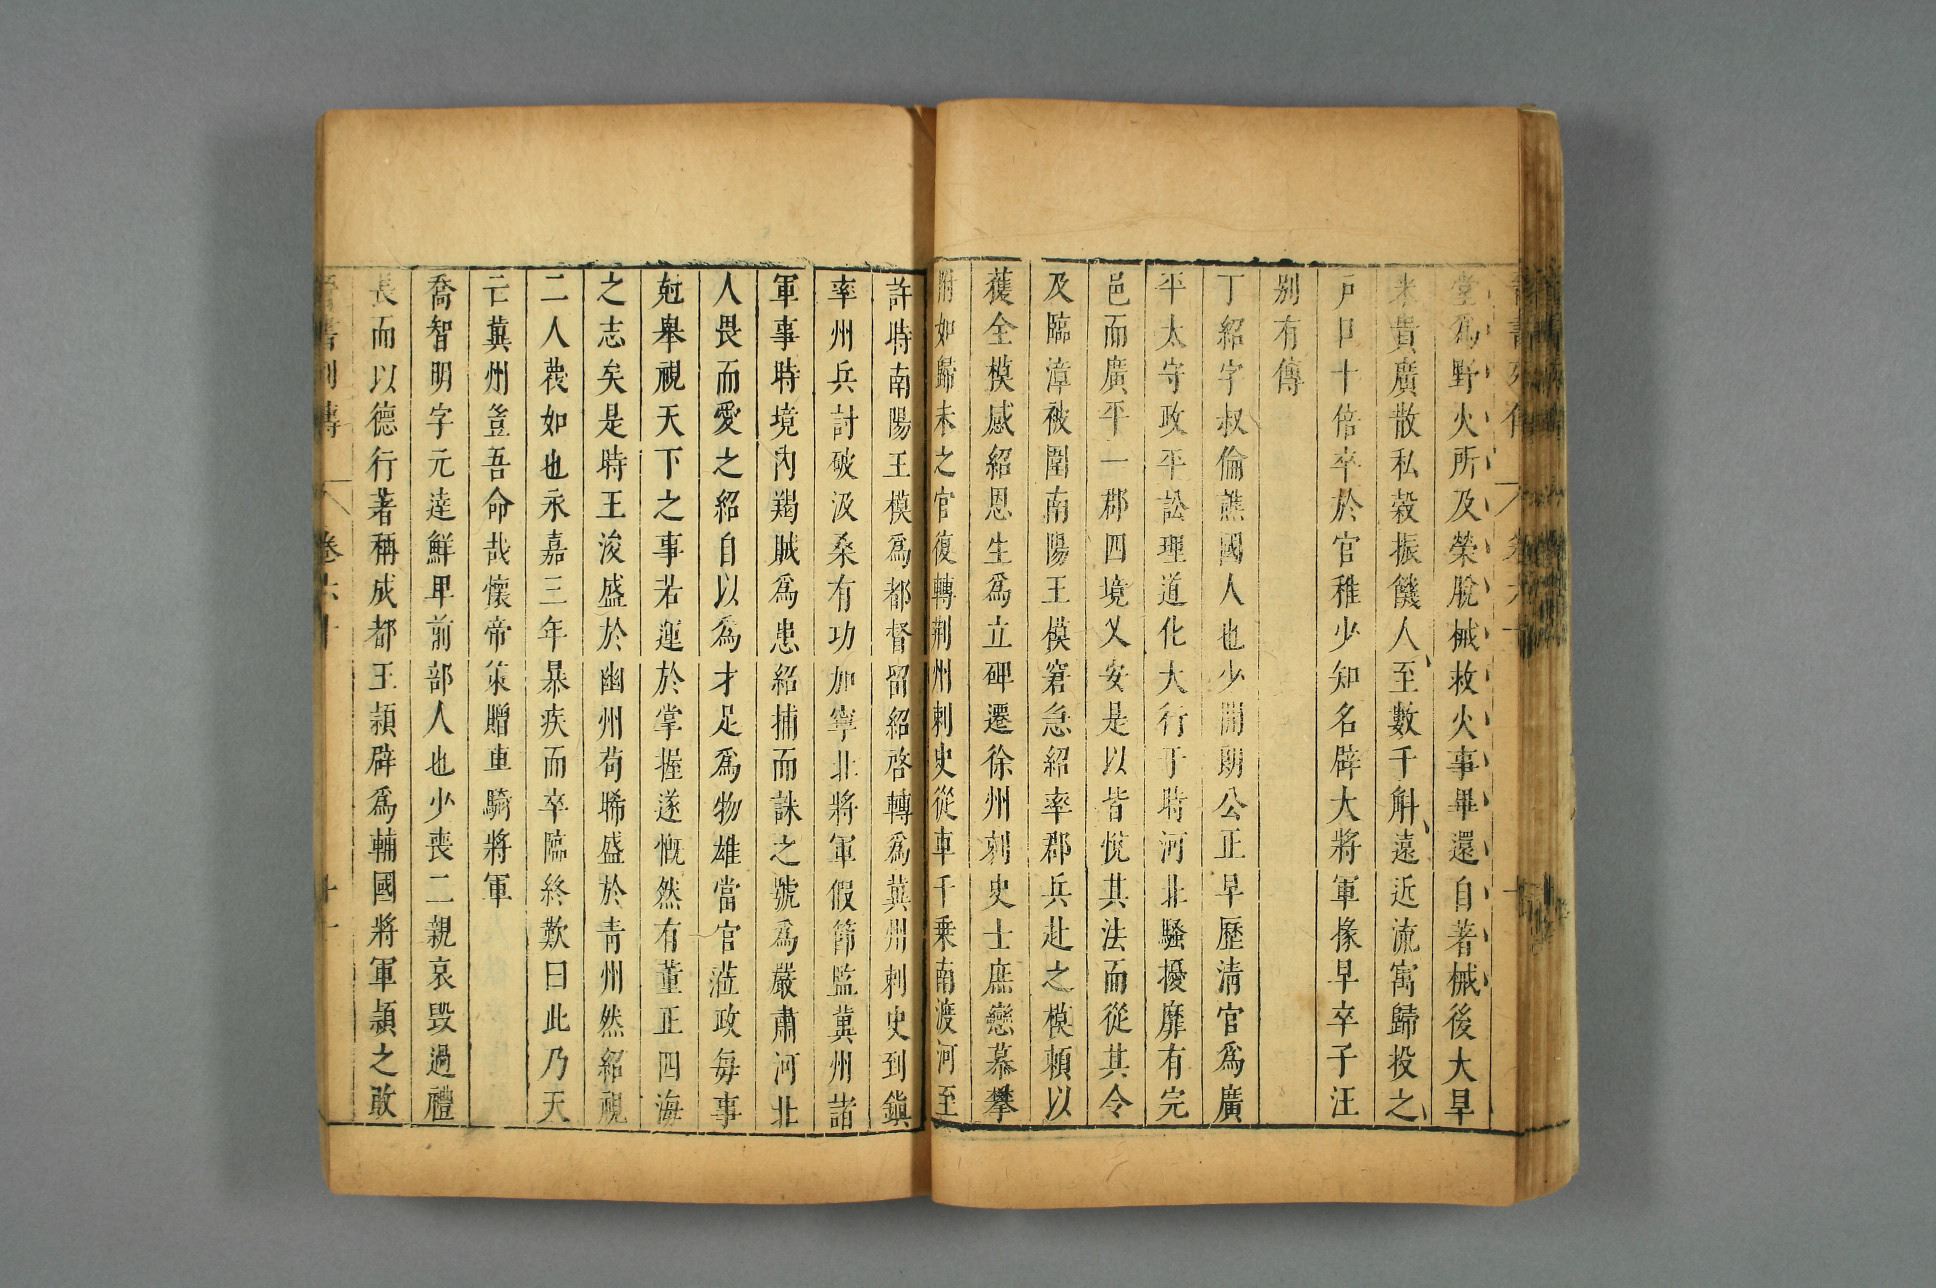 堂爲野火所及榮脫械救火事畢還自著械後大旱
米貴廣散私穀振饑人至數千斛遠近流寓歸投之
戶口十倍卒於官稚少知名辟大將軍掾早卒子汪
別有傳
丁紹字叔倫譙國人也少開朗公正早歷清官爲廣
平太守政平訟理道化大行于時河北騷擾靡有完
邑而廣平一郡四境乂安是以皆悅其法而從其令
及臨漳被圍南陽王模窘急紹率郡兵赴之模賴以
獲全模感紹恩生爲立碑遷徐州刺史士庶戀慕攀
附如歸未之官復轉荆州刺史從車千乗南渡河至
許時南陽王模爲都督留紹啓轉爲冀州刺史到鎭
率州兵討破汲桑有功加寧北將軍假節監冀州諸
軍事時境內羯賊爲患紹捕而誅之號爲嚴肅河北
人畏而愛之紹自以爲才足爲物雄當官蒞政每事
尅舉視天下之事若運於掌握遂慨然有董正四海
之志矣是時王浚盛於幽州苟晞盛於靑州然紹視
二人蔑如也永嘉三年暴疾而卒臨終歎曰此乃天
亡冀州豈吾命哉懷帝策贈車騎將軍
喬智明字元達鮮卑前部人也少喪二親哀毀過禮
長而以德行著稱成都王頴辟爲輔國將軍頴之敗
晉書列傳 卷六十 十一